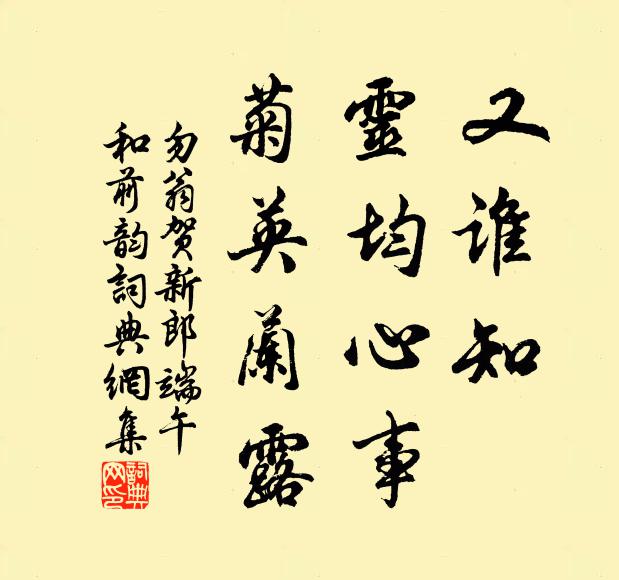 又誰知
靈均心事
菊英蘭露
勿翁賀新郎端午
和前韵詞典網集
詞典
网印